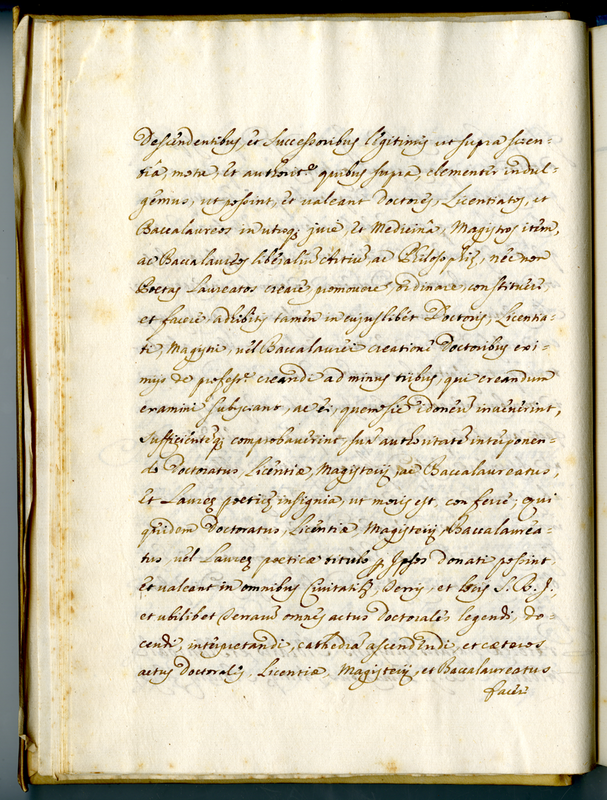 Descendentibus et Successoribus legitimis ut supra scien-
tia, motu et authorit.e quibus supra clementer indul-
gemus, ut possint, et valeant Doctores, Licentiatos, et
Baccalaureos in utroq; jure, et Medicina, Magistros item,
ac Baccalaureos liberaliū Artiū, ac Philosophiæ, nec non
Poetas Laureatos creare, promovere, ordinare, constituere
et facere adhibitis tamen in cujuslibet Doctoris, Licentia-
ti, Magistri, vel Baccalaurei creatione Doctoribus exi-
mijs de profess.e creandi ad minus tribus, qui creandum
examini subijciant, ac ei, quem sic idoneū invenerint,
sufficienteq; comprobaverint, suā authoritatē interponen-
do Doctoratus, Licentiæ, Magisterij, ac Baccalaureatus,
et Laureæ poeticæ insignia, ut moris est, conferre; qui
quidem Doctoratus, Licentiæ, Magisterij, Baccalaurea-
tus, vel Laureæ poeticæ titulo p Ipsos donati possint
et valeant in omnibus Civitatib', Terris, et locis S. R. J.
et ubilibet Terrarū omnes actus Doctorales legendi, do-
cendi, interpretandi, cathedrā ascendendi, et cæteros
actus Doctoralis, Licentiæ, Magisterij, et Baccalaureatus
facere